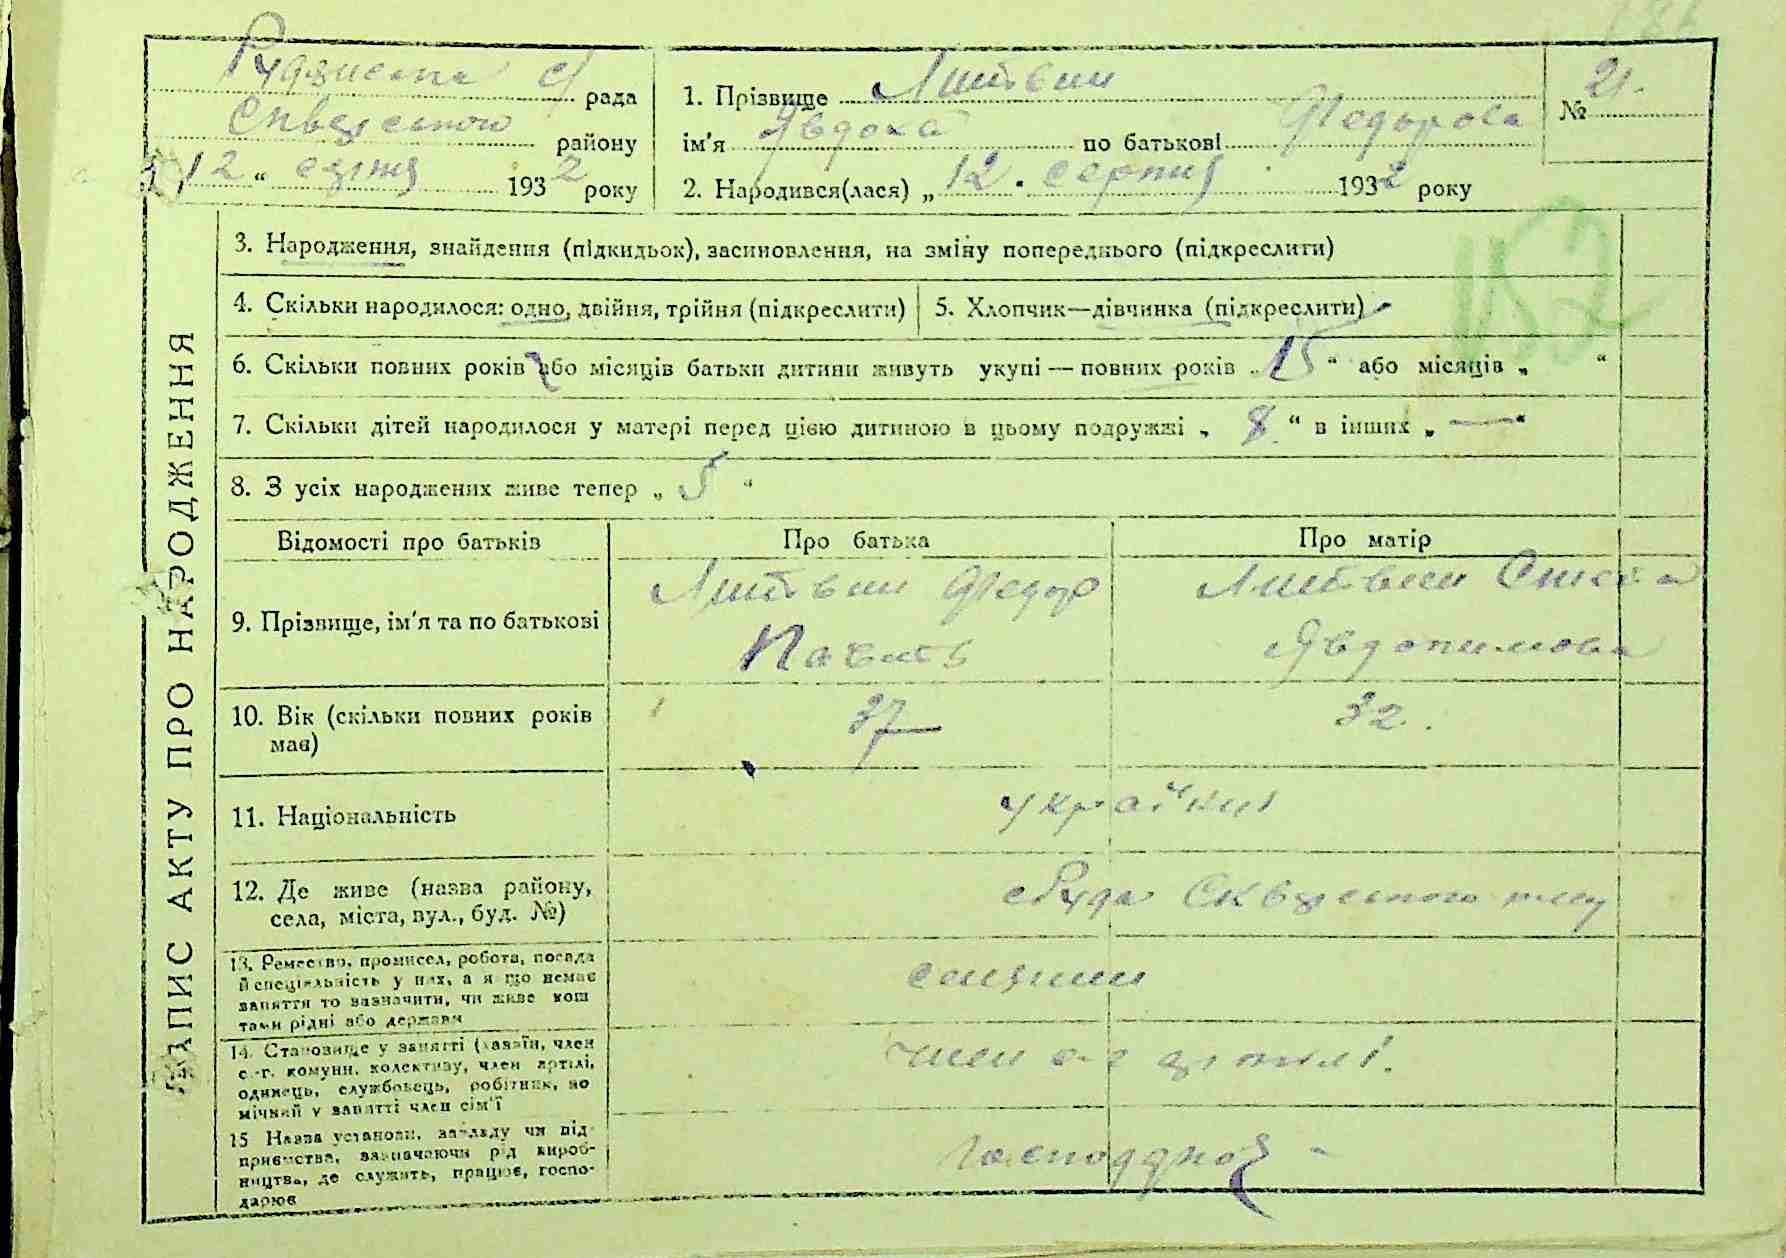 Рудянська с/ рада
Сквирського району
12 " серпня 1932 року
1. Прізвище Литвин
ім'я Явдоха по батькові Федорова
№ 21.
2. Народився(лася) „ 12 " серпня 1932 року
152
ЗАПИС АКТУ ПРО НАРОДЖЕННЯ
3. Народження, знайдення (підкидьок), засиновлення, на зміну попереднього (підкреслити)
4. Скільки народилося: одно, двійня, трійня (підкреслити)
5. Хлопчик—дівчинка (підкреслити)
6. Скільки повних років або місяців батьки дитини живуть укупі — повних років „ 15 " або місяців „ "
7. Скільки дітей народилося у матері перед цією дитиною в цьому подружжі „ 8 " в інших „ — "
8. З усіх народжених живе тепер „ 5 "
Відомості про батьків
Про батька
Про матір
9. Прізвище, ім'я та по батькові
Литвин Федор
Литвин
Явдокимова
10. Вік (скільки повних років має)
37
32.
11. Національність
україн
12. Де живе (назва району, села, міста, вул., буд. №)
с Руда Сквирського
13. Ремество, промисел, робота, посада
й спеціяльність у них, а якщо немає
заняття то зазначити, чи живе кош
тами рідні або держави
селяни
14. Становище у занятті (хазяїн, член
с.-г. комуни, колективу, член артілі,
одинець, службовець, робітник, по
мічний у занятті член сім'ї
член с-г артилі.
15 Назва установи, закладу чи під
приємства, зазначаючи рід вироб-
ництва, де служить, працює, госпо-
дарює